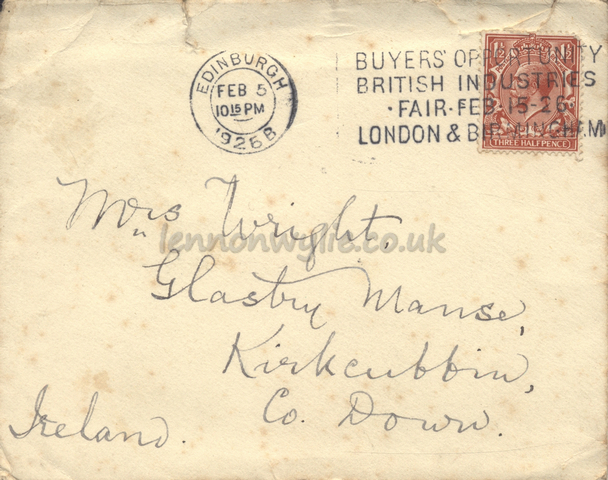 EDINBURGH
FEB 5
10 15 PM
1926 B
BUYERS' OPPORTUNITY
BRITISH INDUSTRIES
·FAIR·FEB 15-26·
LONDON & BIRMINGHAM
THREE HALFPENCE
Mrs Wright,
lennonwylie.co.uk
Glastry Manse,
Kirkcubbin,
Co. Down.
Ireland.